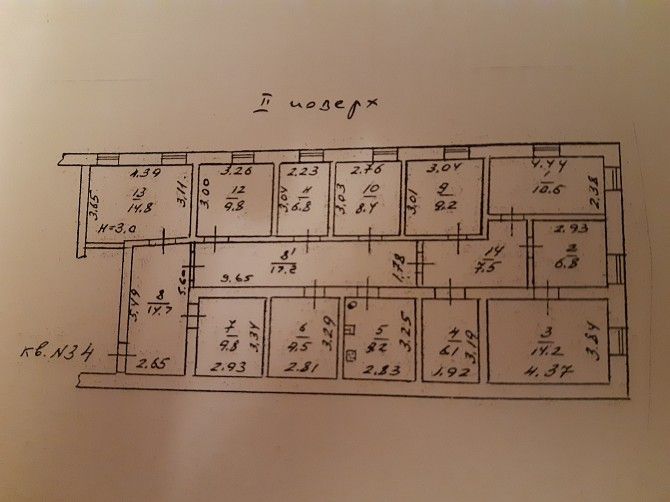 II поверх
4.39
3.26
2.23
2.76
3.04
4.44
3.65
13
14.8
3.11
3.00
12
9.8
3.04
11
6.8
3.03
10
8.4
3.01
9
9.2
1
10.6
2.38
H=3.0
2.93
2
6.8
14
7.5
8'
17.2
9.65
1.78
5.49
8
14.7
5.60
2.65
7
9.8
3.34
2.93
6
9.5
3.29
2.81
5
9.2
3.25
2.83
4
6.1
3.19
1.92
3
14.2
3.84
4.37
кв. N34